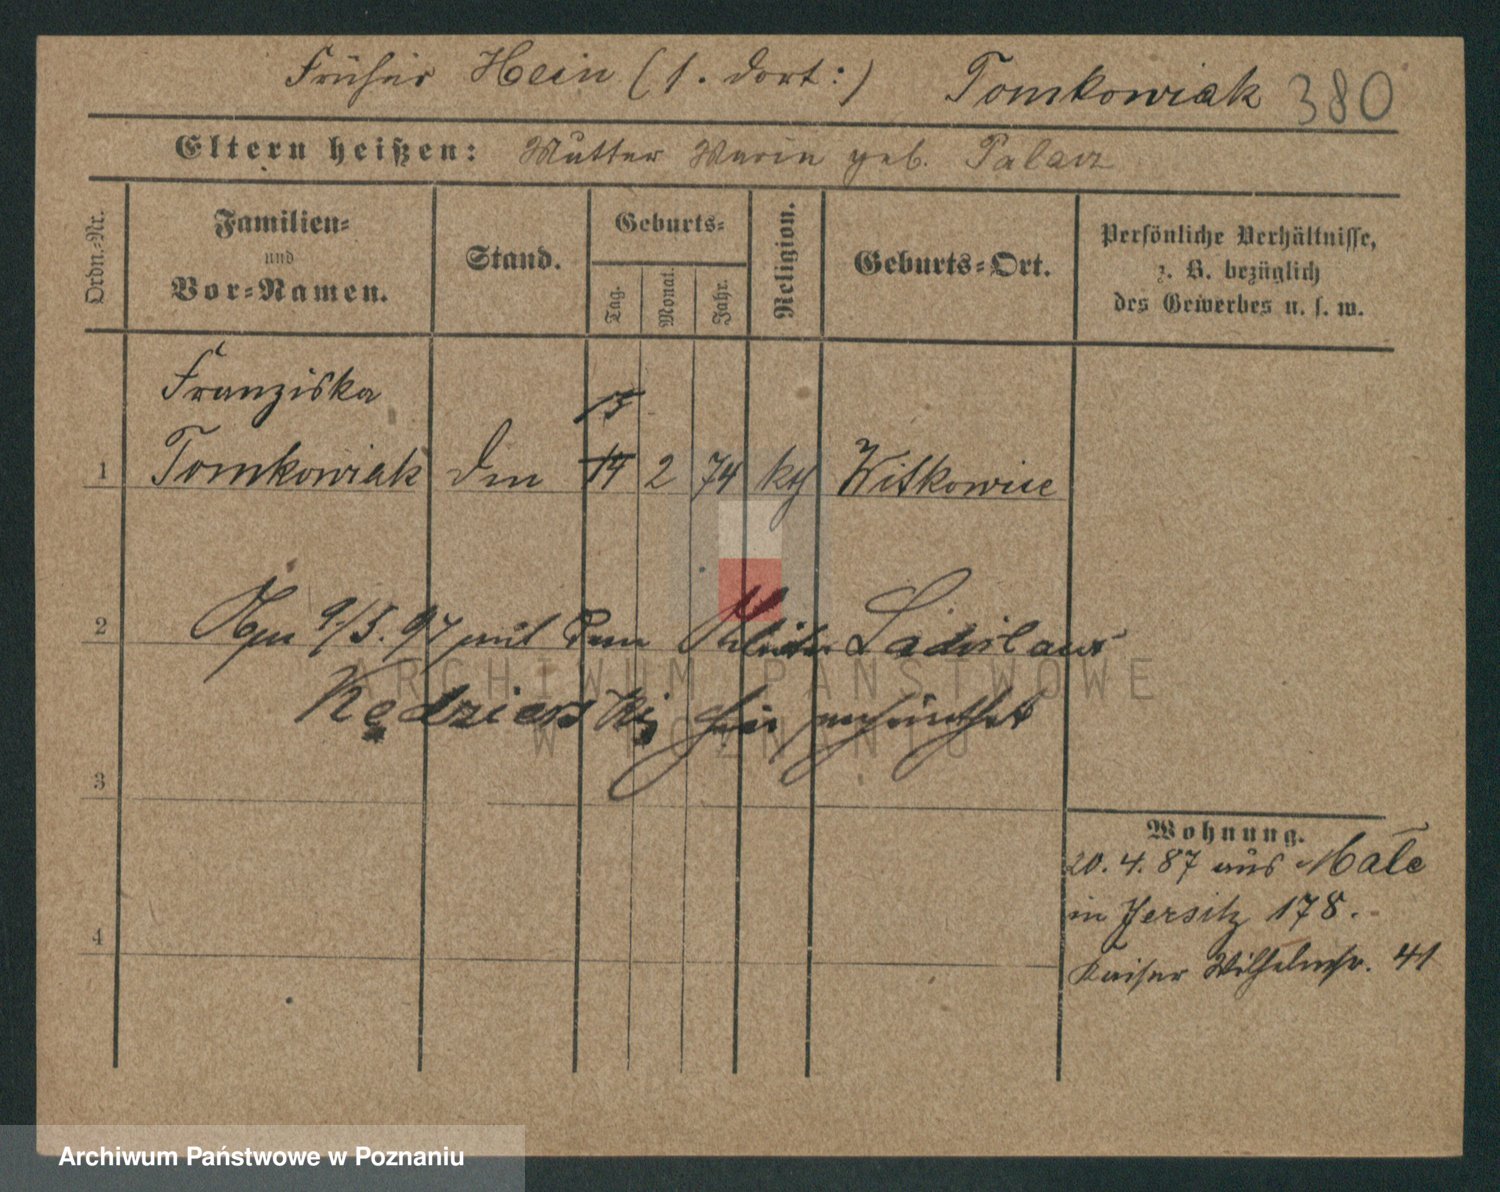 Früher Hein (s. dort:) Tomkowiak 380
Eltern heißen: Mutter Marin geb. Palacz
Ordn.-Nr.
Familien-
und
Vor-Namen.
Stand.
Geburts-
Tag.
Monat.
Jahr.
Religion.
Geburts-Ort.
Persönliche Verhältnisse,
z. B. bezüglich
des Gewerbes u. s. w.
Franziska
13
1 Tomkowiak 14 2 74 kth Witkowice
2 9/5. 97 mit dem Ladislaus
Kędzierski hier verheirathet
3
4
Wohnung.
20. 4. 87 aus
in Jersitz 178.
Kaiser Wilhelmstr. 41
ARCHIWUM PAŃSTWOWE
W POZNANIU
Archiwum Państwowe w Poznaniu